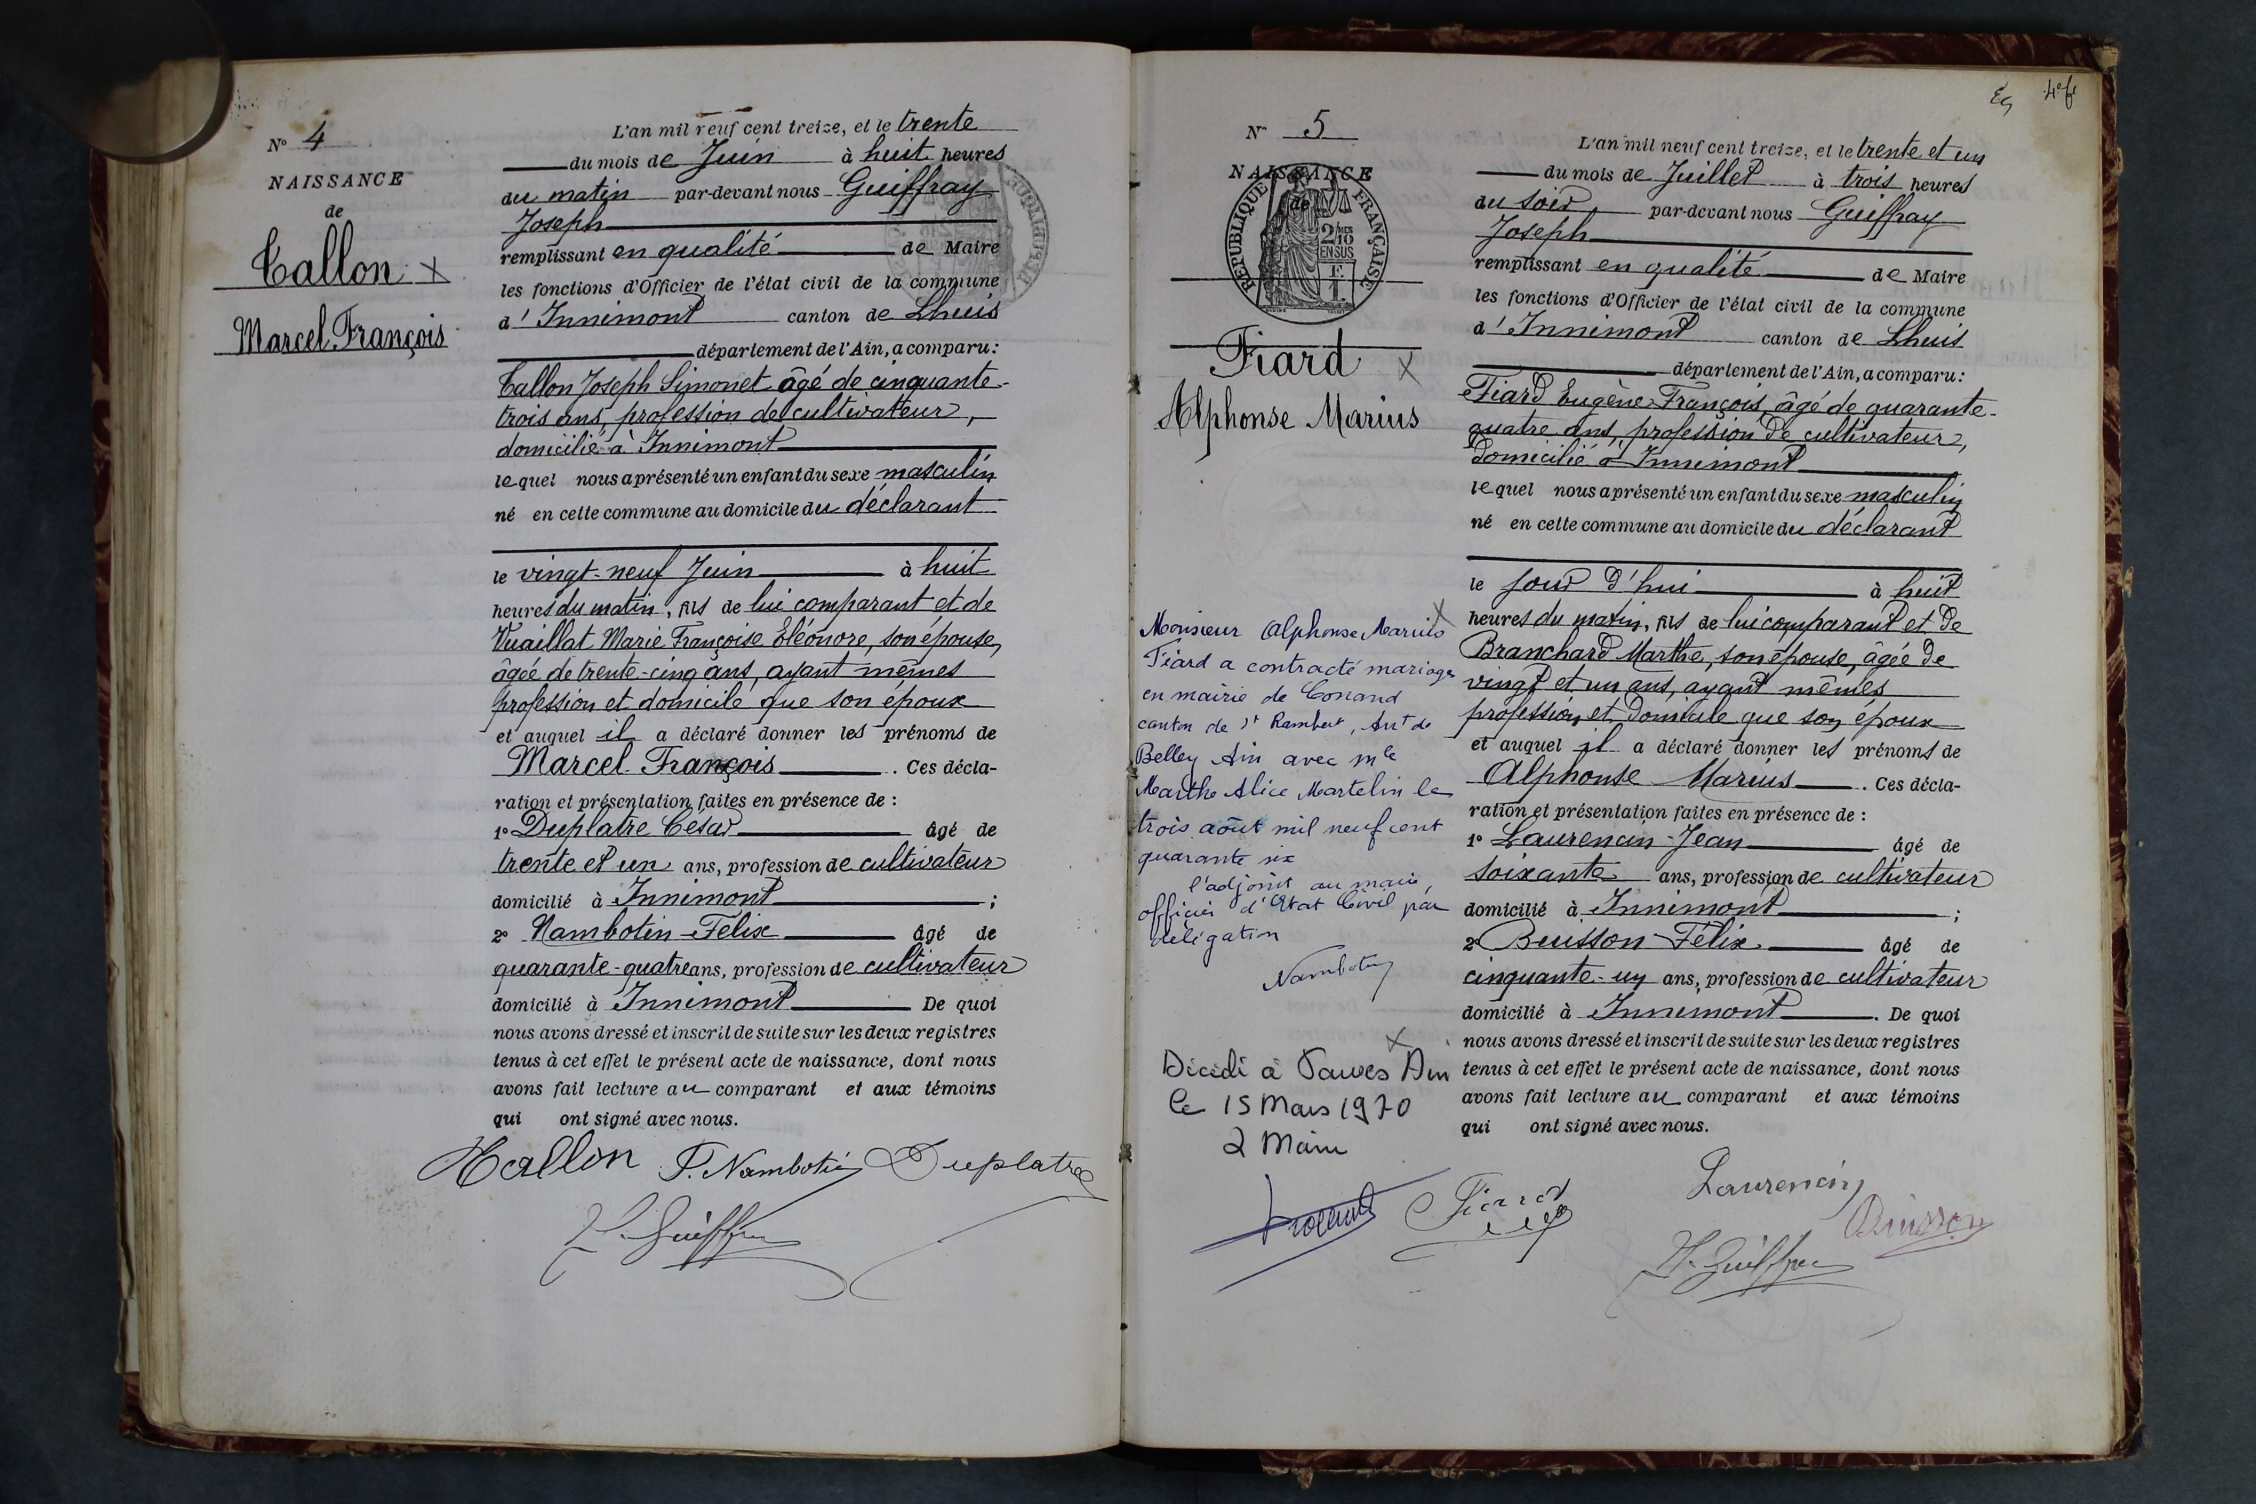 N° 4
NAISSANCE
de
Tallon
Marcel François
L'an mil neuf cent treize, et le trente
du mois de Juin à huit heures
du matin par-devant nous Guiffray
Joseph
remplissant en qualité de Maire
les fonctions d'Officier de l'état civil de la commune
d'Innimont canton de Lhuis
département de l'Ain, a comparu:
Tallon Joseph Simonet âgé de cinquante-
trois ans, profession de cultivateur,
domicilié à Innimont
lequel nous a présenté un enfant du sexe masculin
né en cette commune au domicile du déclarant
le vingt-neuf Juin à huit
heures du matin, fils de lui comparant et de
Vuaillat Marie Françoise Eléonore, son épouse,
âgée de trente-cinq ans, ayant mêmes
profession et domicile que son époux
et auquel il a déclaré donner les prénoms de
Marcel François. Ces décla-
ration et présentation faites en présence de :
1° Duplatre César âgé de
trente et un ans, profession de cultivateur
domicilié à Innimont ;
2° Nambotin Félix âgé de
quarante-quatre ans, profession de cultivateur
domicilié à Innimont De quoi
nous avons dressé et inscrit de suite sur les deux registres
tenus à cet effet le présent acte de naissance, dont nous
avons fait lecture au comparant et aux témoins
qui ont signé avec nous.
Tallon F. Nambotin Duplatre
J. Guiffray
4e f.
N° 5
NAISSANCE
de
RÉPUBLIQUE FRANÇAISE
2/10
EN SUS
Fiard
Alphonse Marius
L'an mil neuf cent treize, et le trente et un
du mois de Juillet à trois heures
du soir par-devant nous Guiffray
Joseph
remplissant en qualité de Maire
les fonctions d'Officier de l'état civil de la commune
d'Innimont canton de Lhuis
département de l'Ain, a comparu:
Fiard Eugène François, âgé de quarante-
quatre ans, profession de cultivateur,
domicilié à Innimont
lequel nous a présenté un enfant du sexe masculin
né en cette commune au domicile du déclarant
le jour d'hui à huit
heures du matin, fils de lui comparant et de
Branchard Marthe, son épouse, âgée de
vingt et un ans, ayant mêmes
profession et domicile que son époux
et auquel il a déclaré donner les prénoms de
Alphonse Marius. Ces décla-
ration et présentation faites en présence de :
1° Laurencin Jean âgé de
soixante ans, profession de cultivateur
domicilié à Innimont ;
2° Buisson Félix âgé de
cinquante-un ans, profession de cultivateur
domicilié à Innimont. De quoi
nous avons dressé et inscrit de suite sur les deux registres
tenus à cet effet le présent acte de naissance, dont nous
avons fait lecture au comparant et aux témoins
qui ont signé avec nous.
Monsieur Alphonse Marius
Fiard a contracté mariage
en mairie de Conand
canton de St Rambert, Art de
Belley Ain avec Mle
Marthe Alice Martelin le
trois août mil neuf cent
quarante six
l'adjoint au maire,
officier d'Etat Civil par
délégation
Nambotin
Décédé à Parves Ain
le 15 Mars 1970
Maire
Fiard
Laurencin
Buisson
J. Guiffray